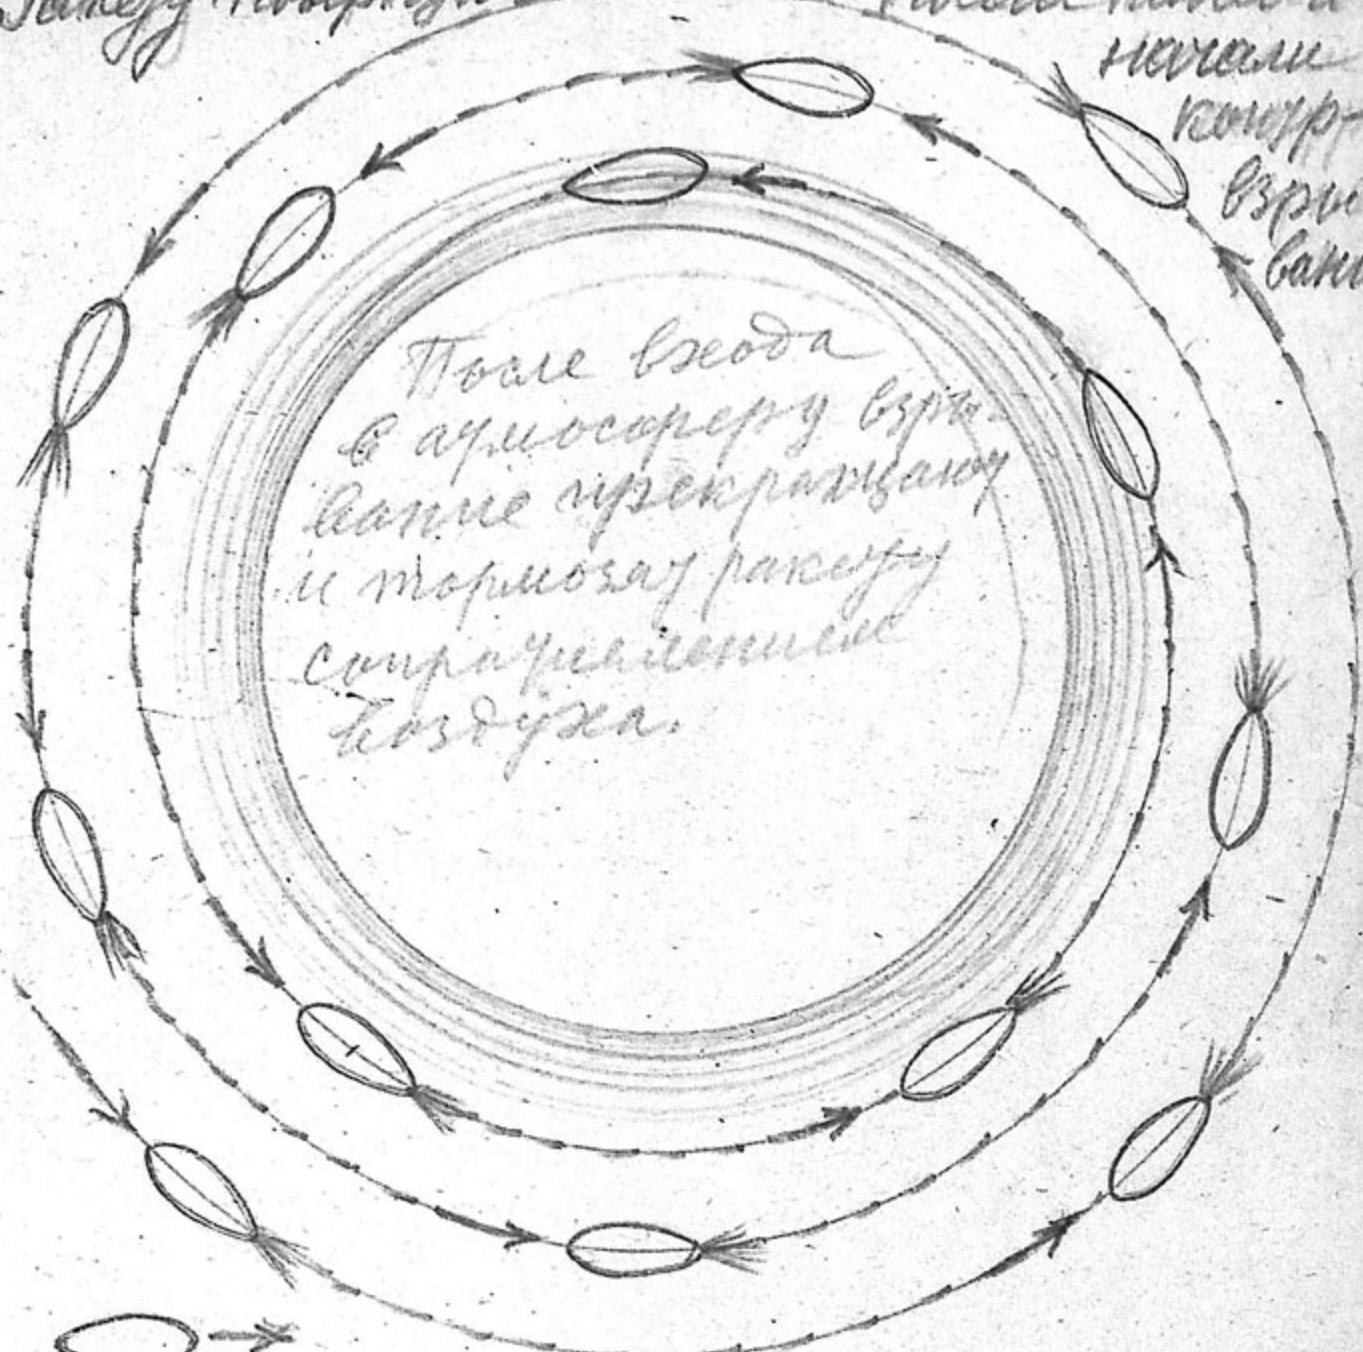 Ракету повернули
начали
контр-
взры
вани
После входа
в атмосферу взры-
вание прекращают
и тормозят ракету
сопротивлением
воздуха.